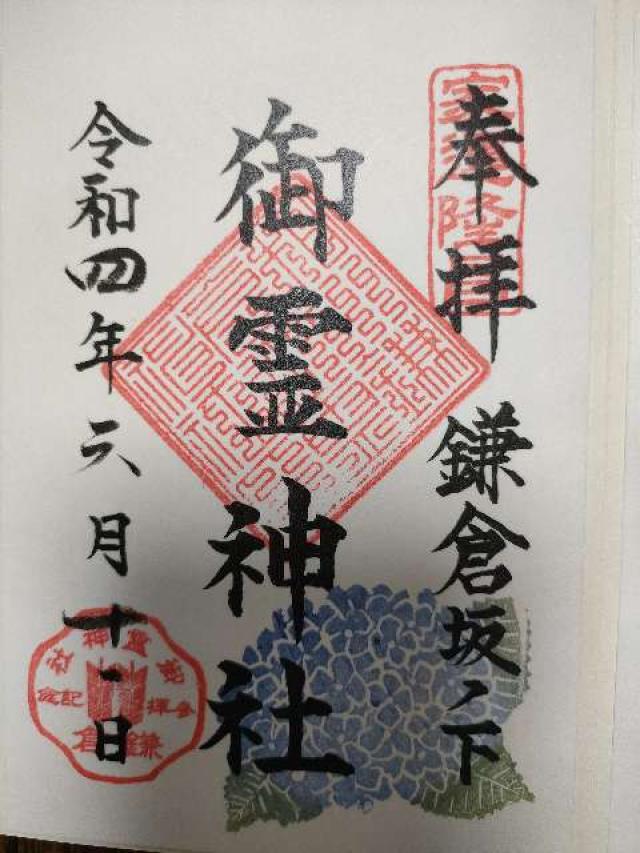 奉拝
鎌倉坂ノ下
御霊神社
令和四年六月十二日
御霊神社
参拝記念
鎌倉